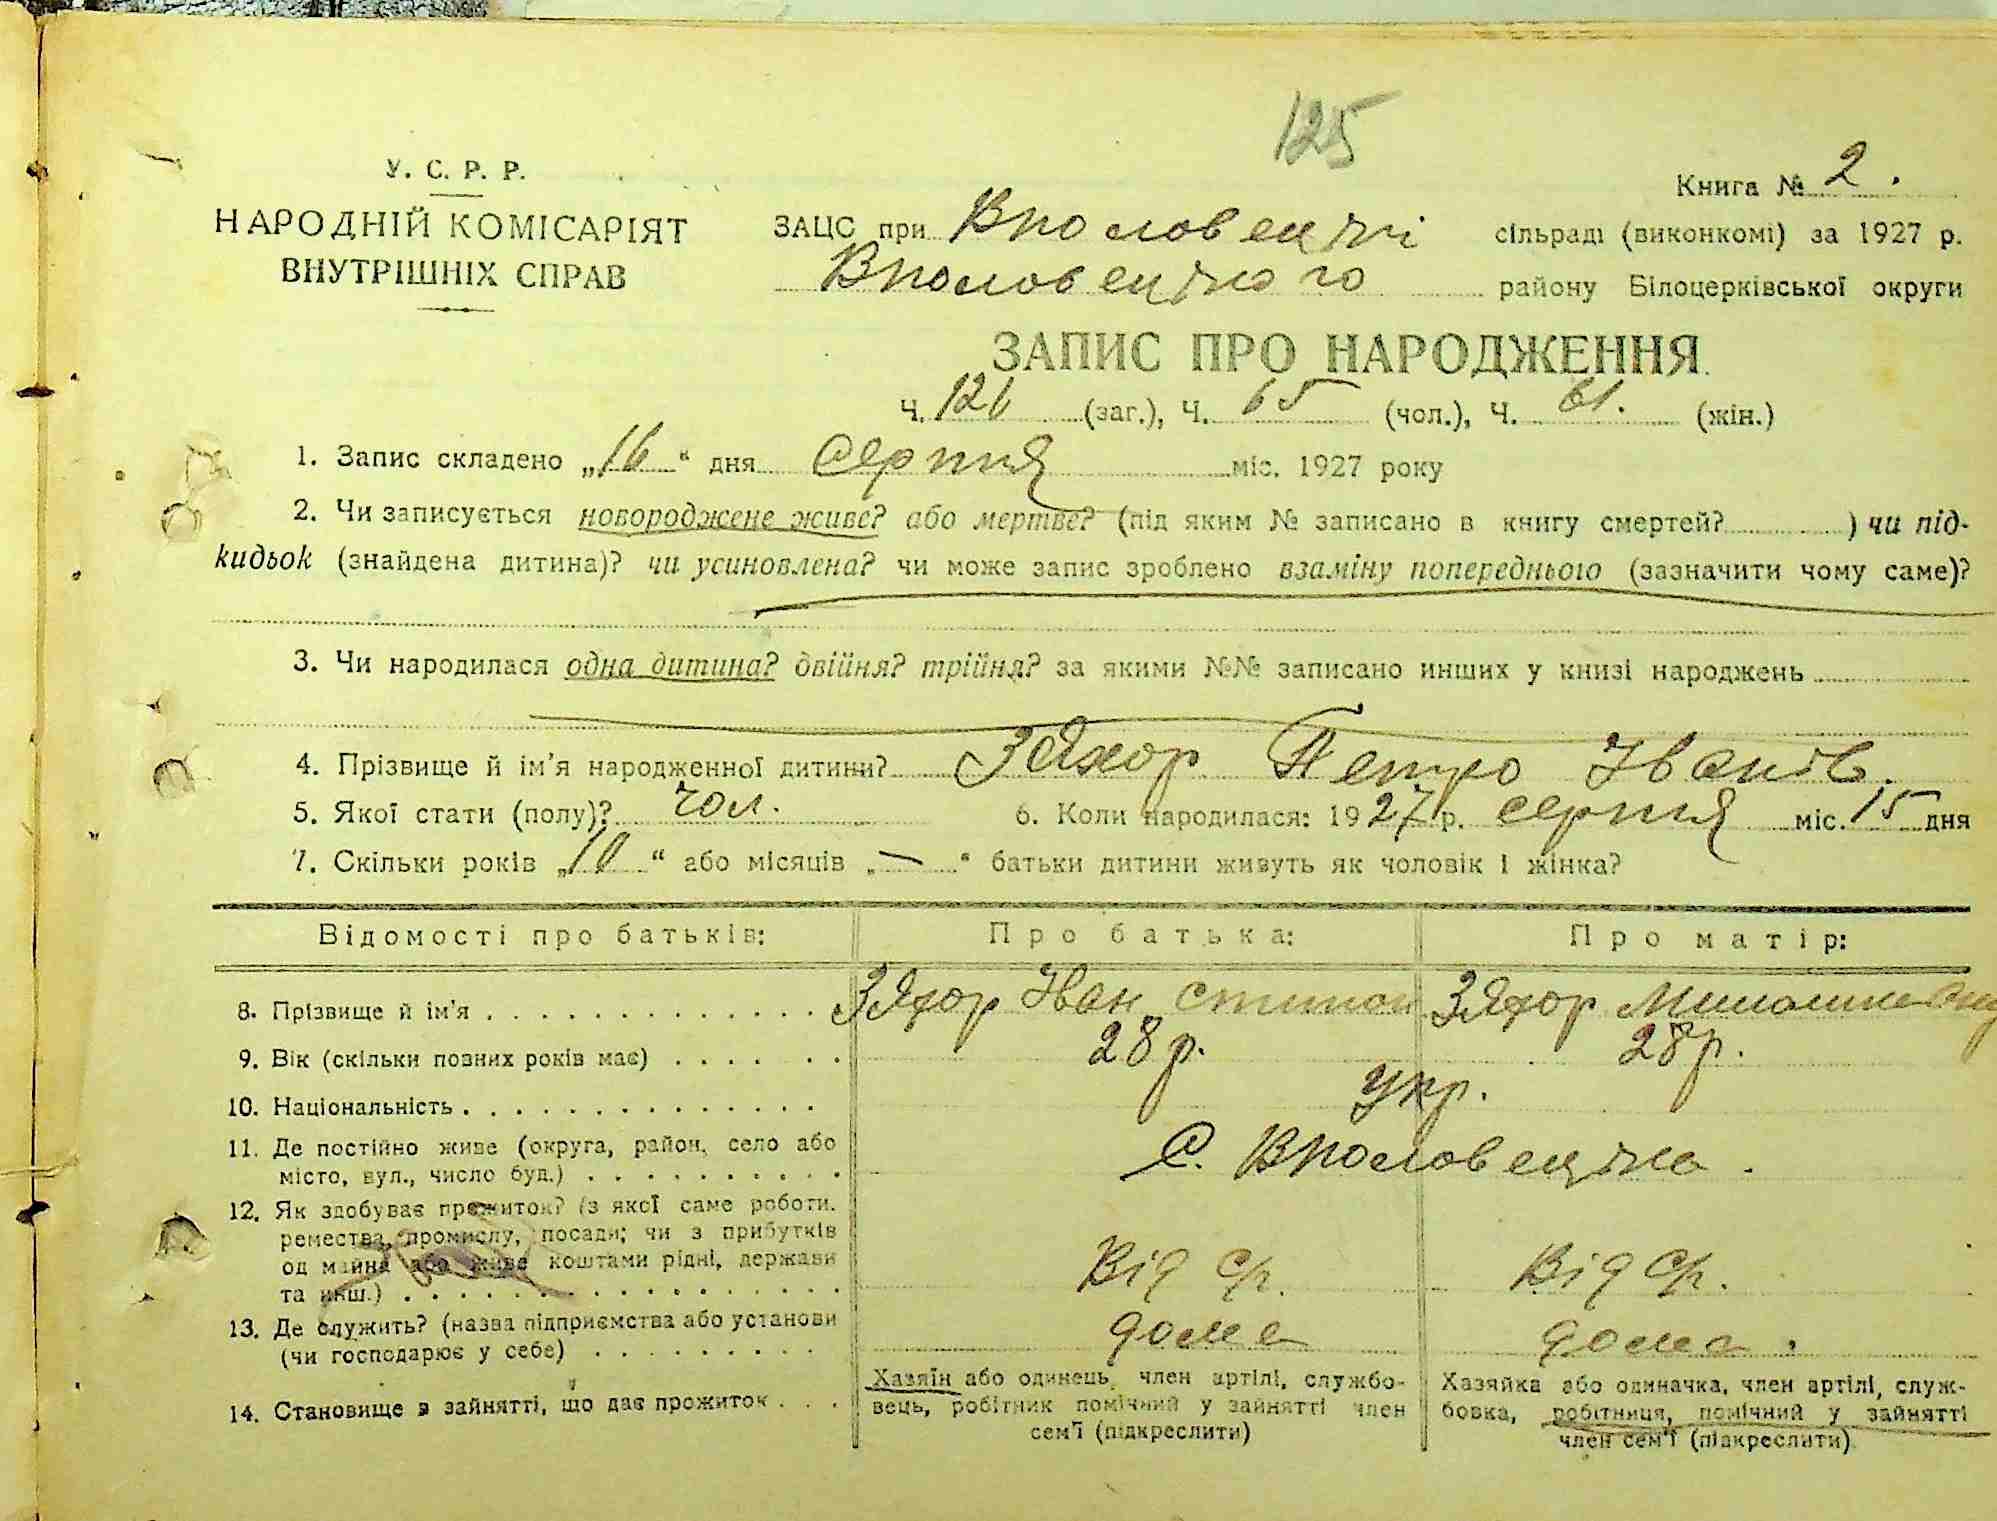 125
У. С. Р. Р.
НАРОДНІЙ КОМІСАРІЯТ
ВНУТРІШНІХ СПРАВ
Книга № 2.
ЗАЦС при Вполовеццкі сільраді (виконкомі) за 1927 р.
Вполовецького району Білоцерківської округи
ЗАПИС ПРО НАРОДЖЕННЯ.
Ч. 126 (заг.), Ч. 65 (чол.), Ч. 61. (жін.)
1. Запис складено „16“ дня серпня міс. 1927 року
2. Чи записується новороджене живе? або мертве? (під яким № записано в книгу смертей? ) чи під-
кидьок (знайдена дитина)? чи усиновлена? чи може запис зроблено взаміну попереднього (зазначити чому саме)?
3. Чи народилася одна дитина? двійня? трійня? за якими №№ записано инших у книзі народжень
4. Прізвище й ім'я народженної дитини? Зяхор Петро Іванів.
5. Якої стати (полу)? чол. 6. Коли народилася: 1927 р. серпня міс. 15 дня
7. Скільки років „10“ або місяців „—“ батьки дитини живуть як чоловік і жінка?
Відомості про батьків: Про батька: Про матір:
8. Прізвище й ім'я Зяхор Іван Зяхор
9. Вік (скільки повних років має) 28 р. 28 р.
10. Національність Укр.
11. Де постійно живе (округа, район, село або
місто, вул., число буд.) С.
12. Як здобуває прожиток? (з якої саме роботи.
ремества, промислу, посади; чи з прибутків
од майна або живе коштами рідні, держави
та инш.) Від ср. Від ср.
13. Де служить? (назва підприємства або установи
(чи господарює у себе) дома дома.
14. Становище в зайнятті, що дає прожиток
Хазяїн або одинець, член артілі, службо-
вець, робітник помічний у зайнятті член
сем'ї (підкреслити)
Хазяйка або одиначка, член артілі, служ-
бовка, робітниця, помічний у зайнятті
член сем'ї (підкреслити)